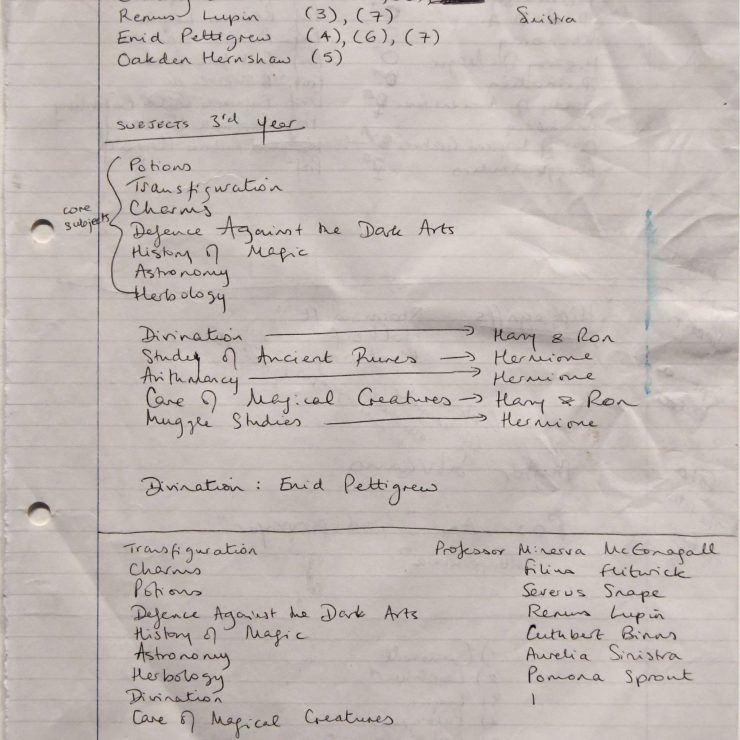 Remus Lupin (3), (7) Sinistra
Enid Pettigrew (4), (6), (7)
Oakden Hernshaw (5)
SUBJECTS 3rd year
core subjects
Potions
Transfiguration
Charms
Defence Against the Dark Arts
History of Magic
Astronomy
Herbology
Divination → Harry & Ron
Study of Ancient Runes → Hermione
Arithmancy → Hermione
Care of Magical Creatures → Harry & Ron
Muggle Studies → Hermione
Divination : Enid Pettigrew
Transfiguration Professor Minerva McGonagall
Charms Filius Flitwick
Potions Severus Snape
Defence Against the Dark Arts Remus Lupin
History of Magic Cuthbert Binns
Astronomy Aurelia Sinistra
Herbology Pomona Sprout
Divination
Care of Magical Creatures